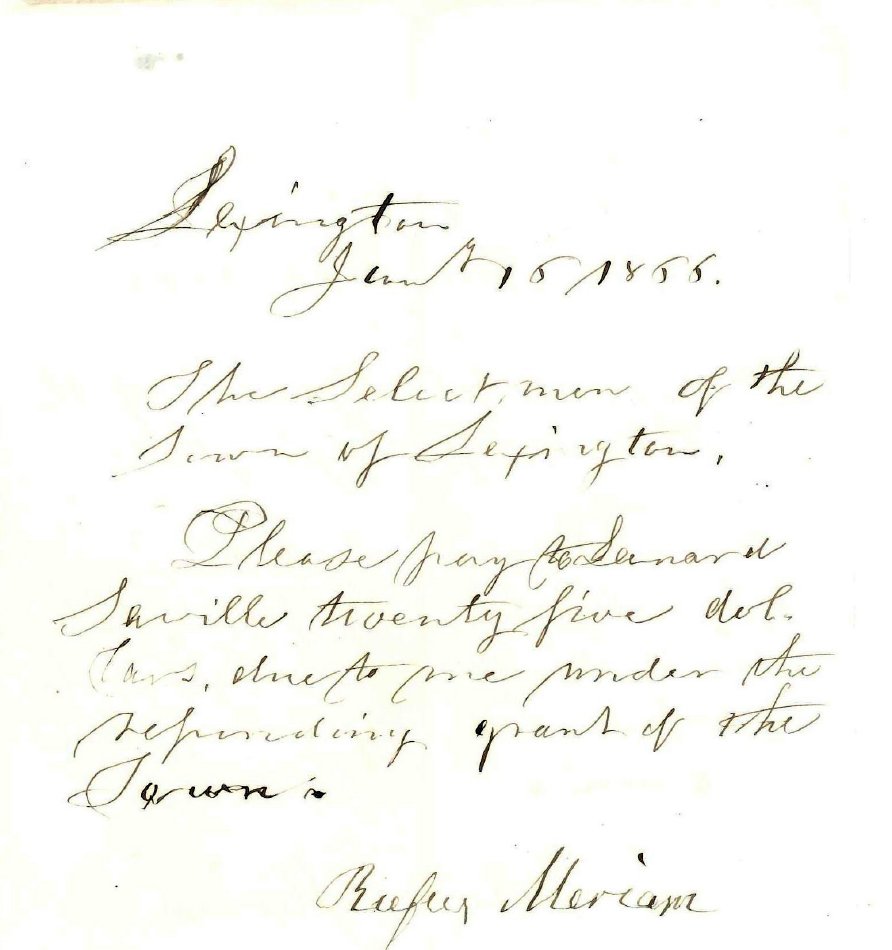 Lexington
Jany 16 1866.
The Selectmen of the
Town of Lexington,
Please pay to Lenard
Saville twenty five dol-
lars, due to me under the
refunding grant of the
Town.
Rufus Meriam